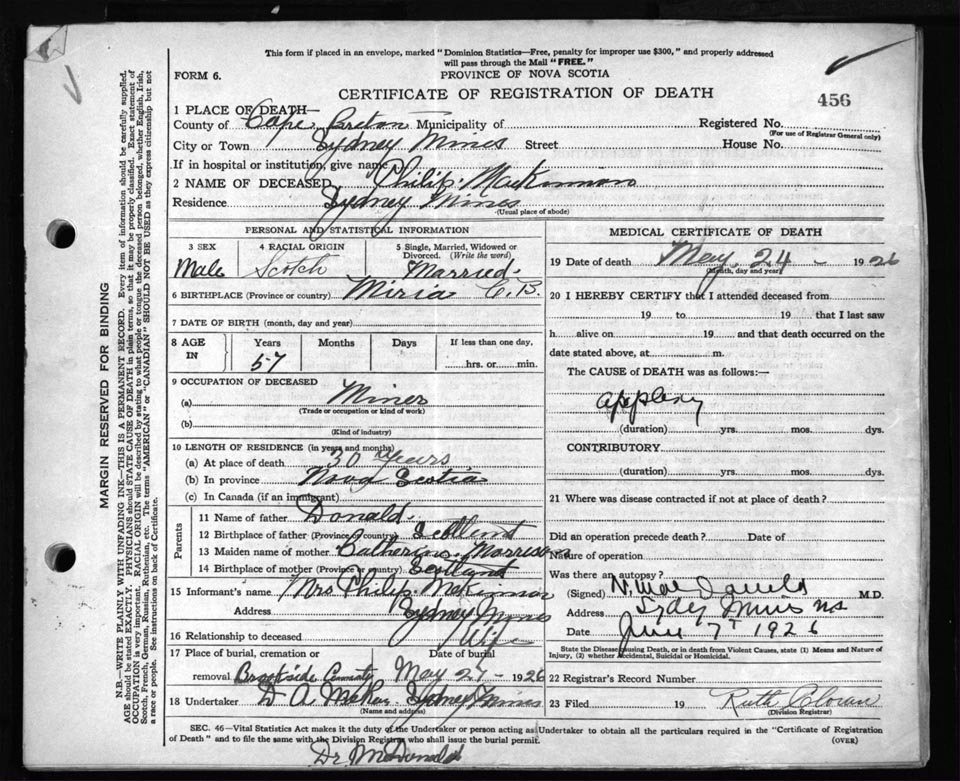 This form if placed in an envelope, marked "Dominion Statistics—Free, penalty for improper use $300," and properly addressed
will pass through the Mail "FREE."
FORM 6.
PROVINCE OF NOVA SCOTIA
CERTIFICATE OF REGISTRATION OF DEATH
456
1 PLACE OF DEATH—
County of Cape Breton Municipality of Registered No.
(For use of Registrar General only)
City or Town Sydney Mines Street House No.
If in hospital or institution, give name
2 NAME OF DECEASED Philip. MacKinnon
Residence Sydney Mines
(Usual place of abode)
PERSONAL AND STATISTICAL INFORMATION
3 SEX
Male
4 RACIAL ORIGIN
Scotch
5 Single, Married, Widowed or
Divorced. (Write the word)
Married.
6 BIRTHPLACE (Province or country) Miria C.B.
7 DATE OF BIRTH (month, day and year)
8 AGE IN
Years Months Days If less than one day,
57 hrs. or min.
9 OCCUPATION OF DECEASED
(a) Miner
(Trade or occupation or kind of work)
(b)
(Kind of industry)
10 LENGTH OF RESIDENCE (in years and months)
(a) At place of death 30 years
(b) In province Nova Scotia
(c) In Canada (if an immigrant)
Parents
11 Name of father Donald.
12 Birthplace of father (Province or country)
13 Maiden name of mother Catherine. Morrison
14 Birthplace of mother (Province or country) Scotland
15 Informant's name Mrs Philip McKinnon
Address Sydney Mines
16 Relationship to deceased Wife
17 Place of burial, cremation or Date of burial
removal Brookside May 27 — 1926
18 Undertaker D A Sydney Mines
(Name and address)
MEDICAL CERTIFICATE OF DEATH
19 Date of death May. 24 - 1926
(Month, day and year)
20 I HEREBY CERTIFY that I attended deceased from
19 to 19 that I last saw
h alive on 19 and that death occurred on the
date stated above, at m.
The CAUSE of DEATH was as follows:—
(duration) yrs. mos. dys.
CONTRIBUTORY
(duration) yrs. mos. dys.
21 Where was disease contracted if not at place of death?
Did an operation precede death? Date of
Nature of operation
Was there an autopsy?
(Signed) M.D.
Address Sydney Mines NS
Date June 7 1926
State the Disease causing Death, or in death from Violent Causes, state (1) Means and Nature of
Injury, (2) whether Accidental, Suicidal or Homicidal.
22 Registrar's Record Number
23 Filed 19 Ruth
(Division Registrar)
SEC. 46—Vital Statistics Act makes it the duty of the Undertaker or person acting as Undertaker to obtain all the particulars required in the "Certificate of Registration
of Death" and to file the same with the Division Registrar who shall issue the burial permit.
(OVER)
Dr McDonald
MARGIN RESERVED FOR BINDING
N.B.—WRITE PLAINLY WITH UNFADING INK—THIS IS A PERMANENT RECORD. Every item of information should be carefully supplied.
AGE should be stated EXACTLY. PHYSICIANS should STATE CAUSE OF DEATH in plain terms, so that it may be properly classified. Exact statement of
OCCUPATION is very important. RACIAL ORIGIN will be described by stating to what people or tongue the deceased person belonged, whether English, Irish,
Scotch, French, German, Russian, Ruthenian, etc. The terms "AMERICAN" or "CANADIAN" SHOULD NOT BE USED as they express citizenship but not
a race or people. See instructions on back of Certificate.